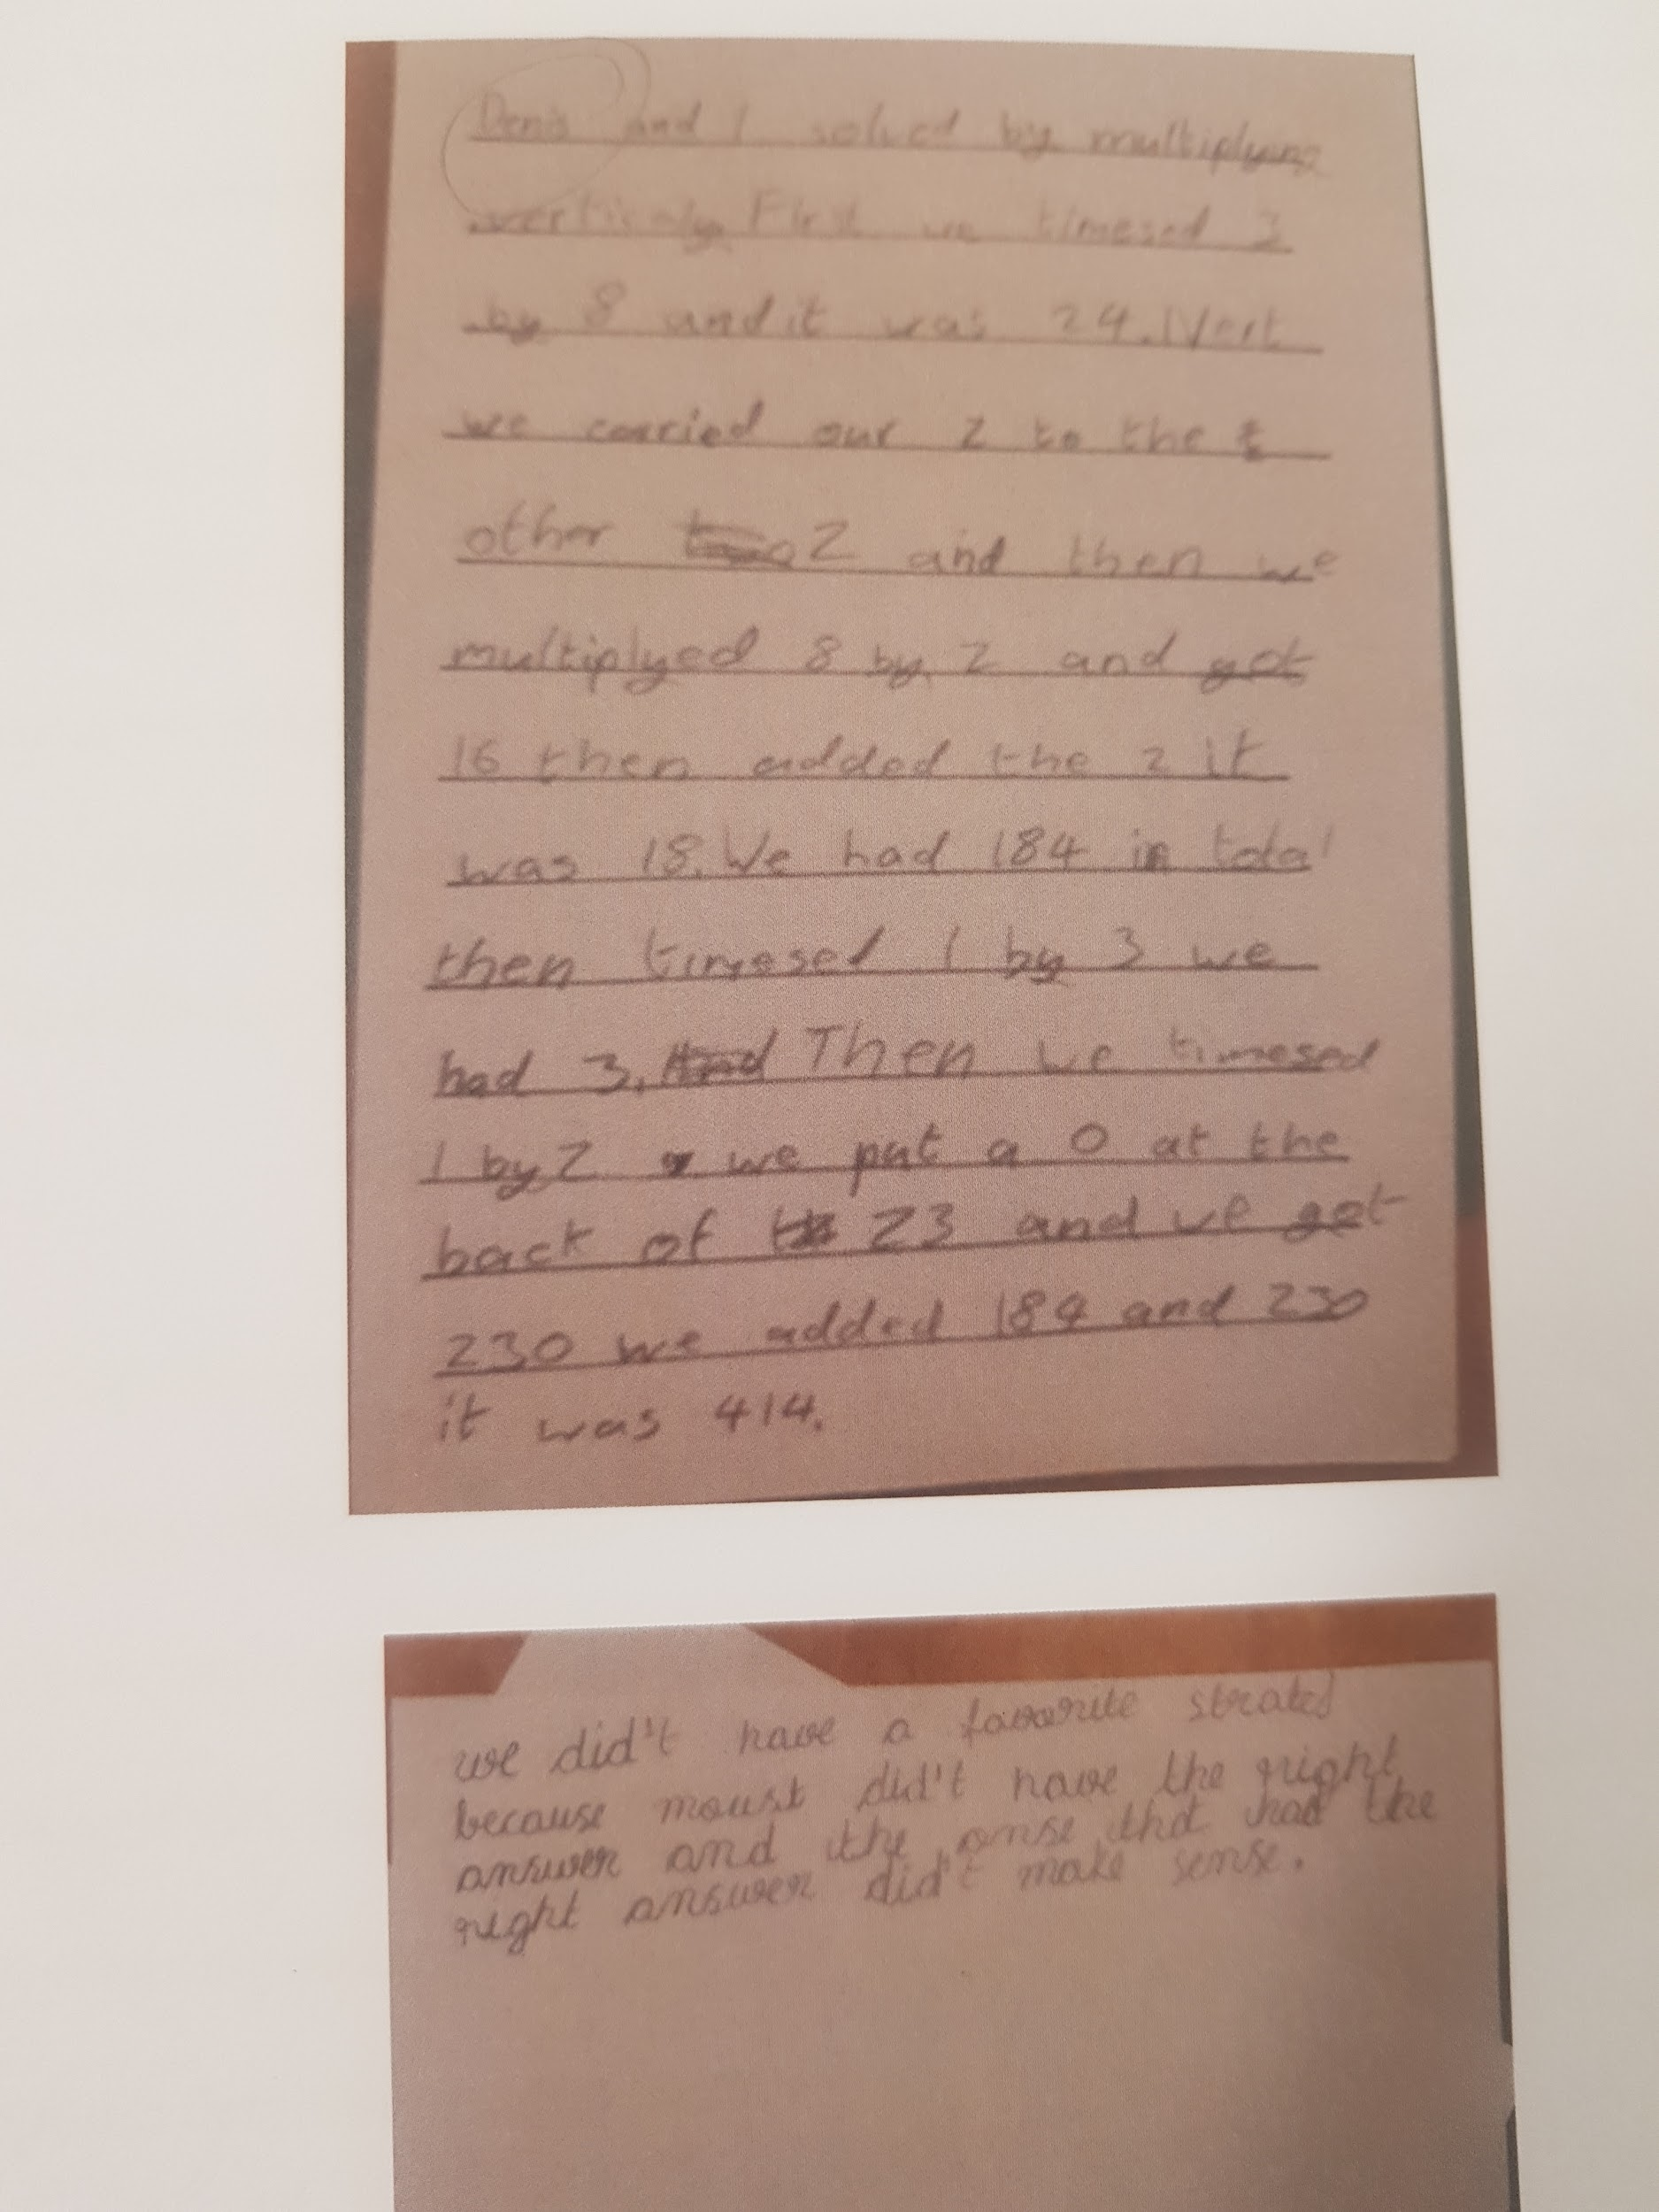 Denis and I solved by multiplying
verticaly First we timesed 3
by 8 and it was 24. Next
we carried our 2 to the t
other two 2 and then we
multiplyed 8 by 2 and got
16 then added the 2 it
was 18. We had 184 in total
then timesed 1 by 3 we
had 3. And Then we timesed
1 by 2 we put a 0 at the
back of 23 and we got
230 we added 184 and 230
it was 414.
we did't have a favorite strated
because moust did't have the right
answer and the onse that had the
right answer did't make sense.